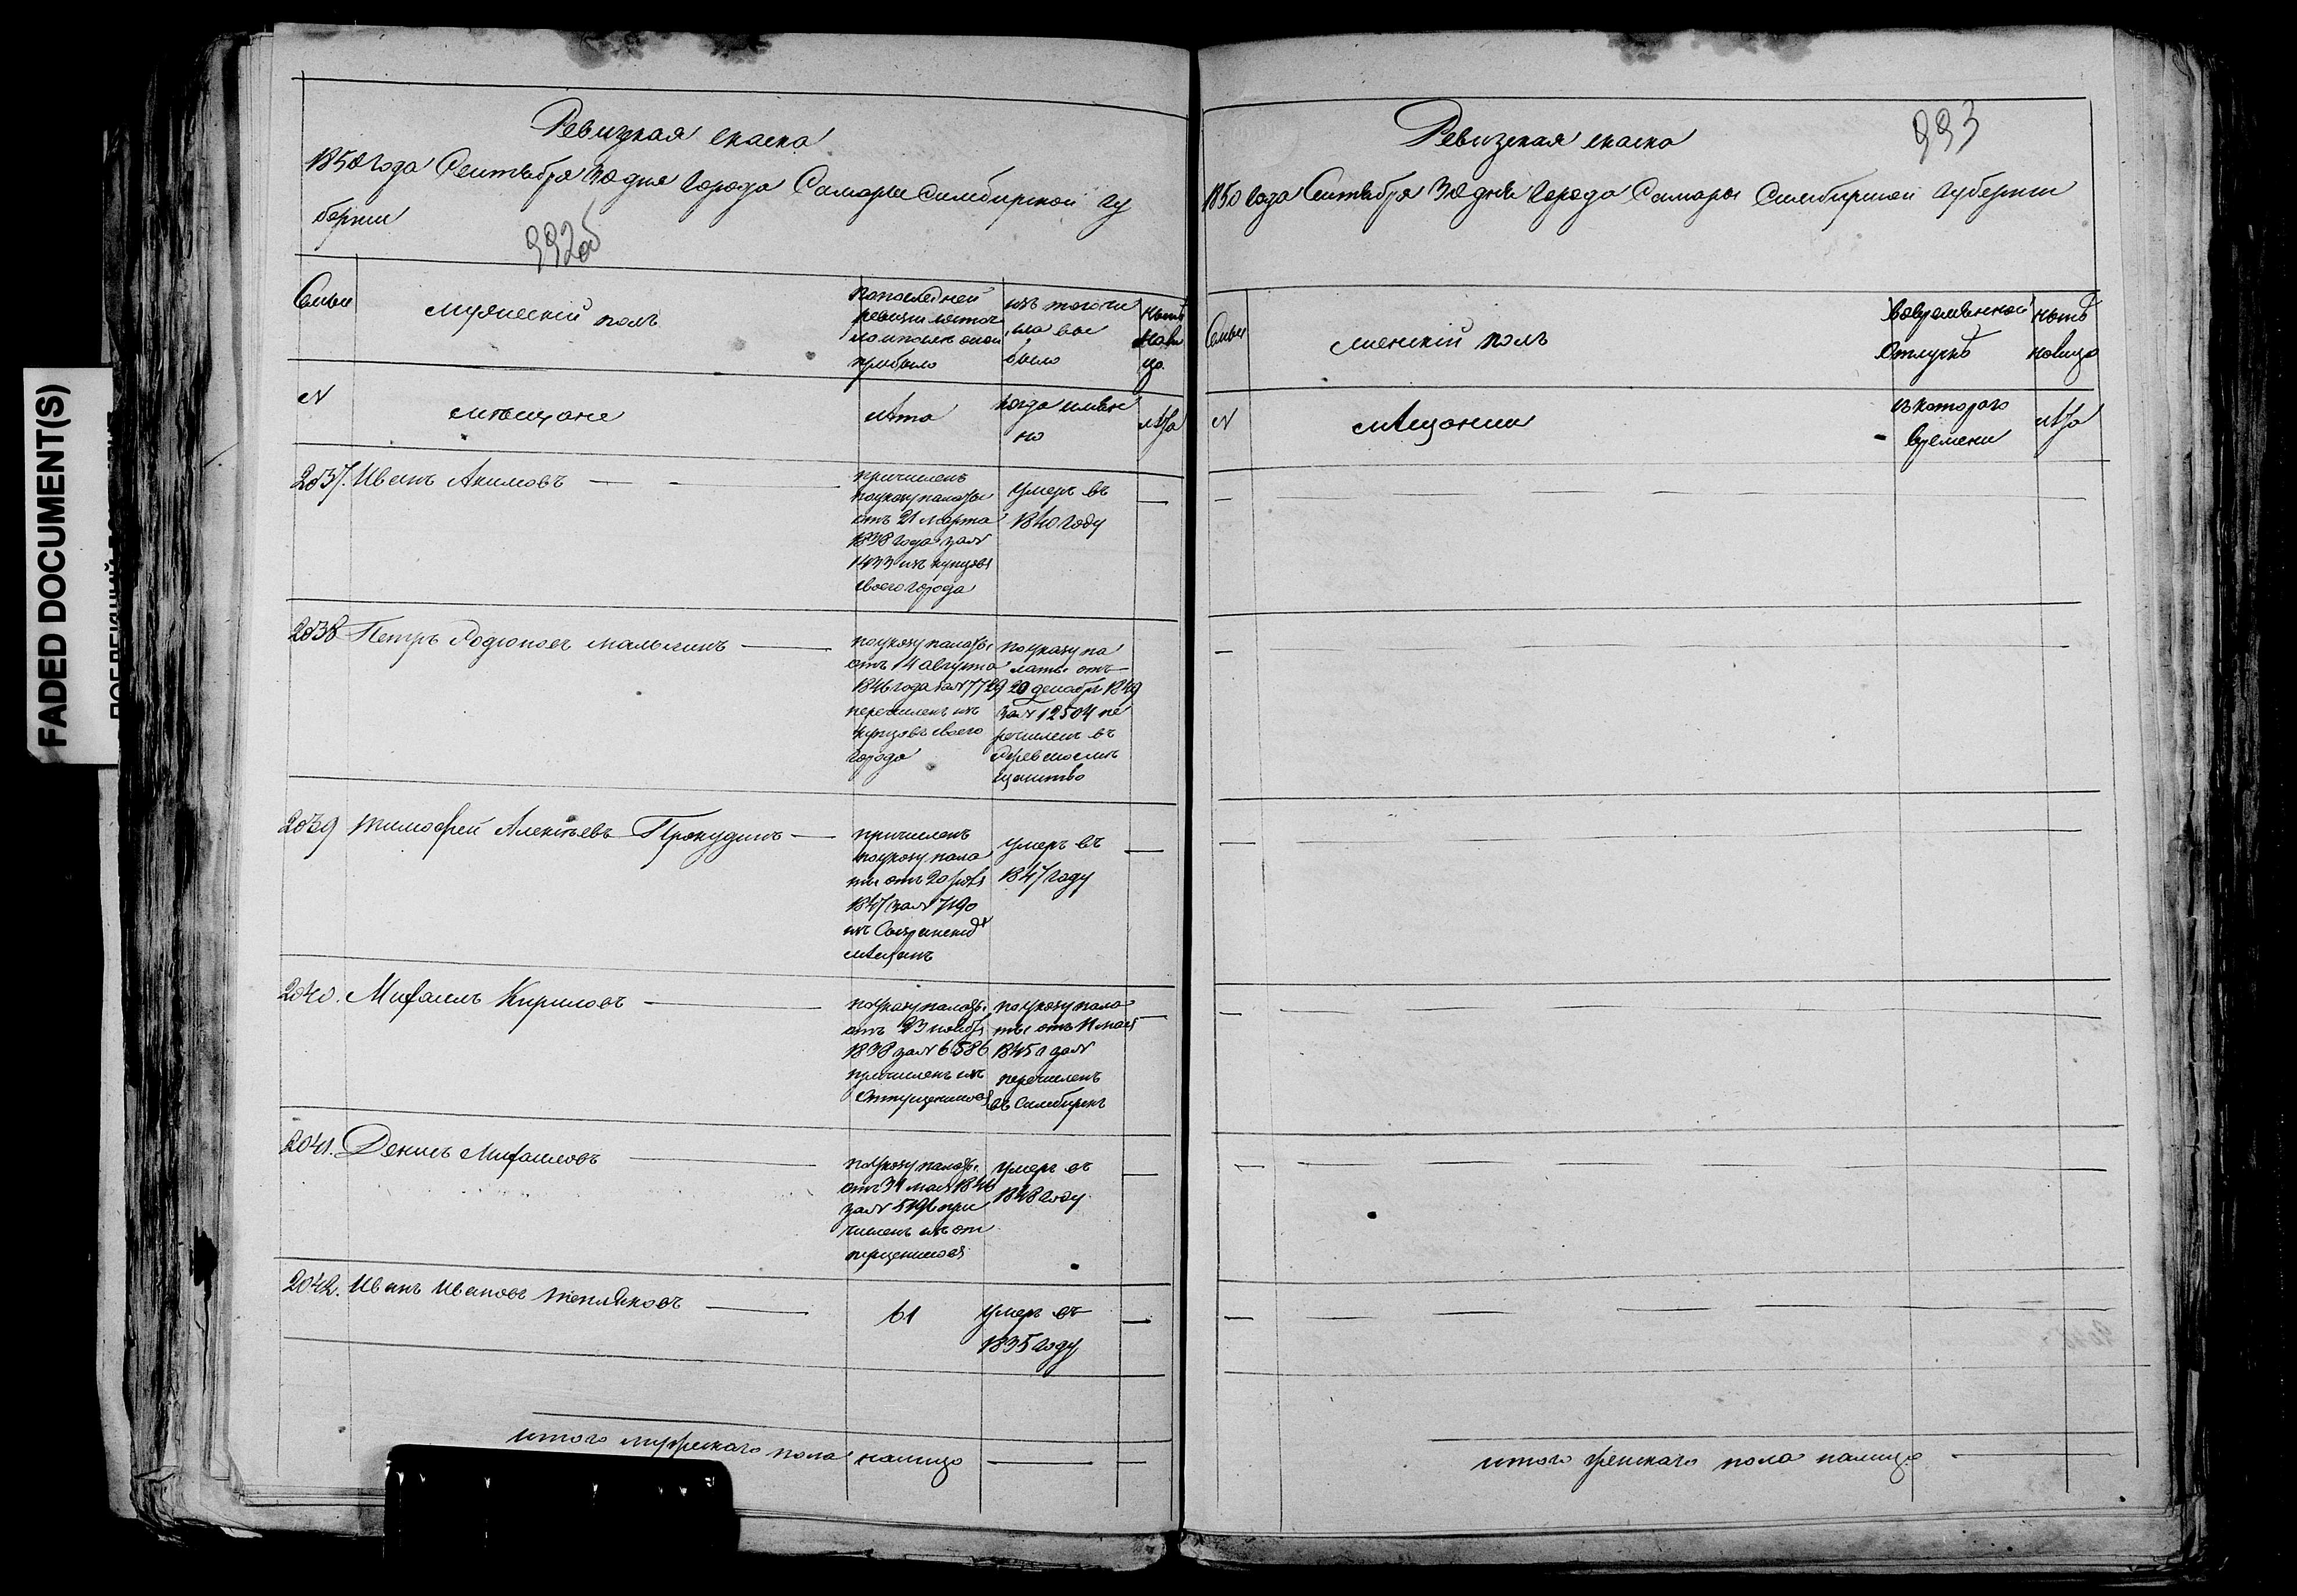 FADED DOCUMENT(S)
Ревизская скаска
1850 года Сентября 30 дня города Самары Симбирской гу
бернии
992об
Семьи
мужеский полъ
По последней
ревизии состоя
ло и после оной
прибыло
изъ того чи
сла вы
было
ныне
на ли
цо
N
мещане
лета
когда имен
но
лета
2037. Иванъ Акимовъ
причисленъ
по указу палаты
отъ 21 марта
1838 года за N
1433 изъ купцовъ
своего города
умеръ въ
1840 году
2038 Петръ Родионовъ Малькинъ
по указу палаты
отъ 14 августа
1846 года за N 7729
перечисленъ изъ
купцовъ своего
города
по указу па
латы отъ
20 декабря 1849
за N 12504 пе
речисленъ въ
мещанство
2039 Тимофей Алексеевъ Прокудинъ
причисленъ
по указу пала
ты отъ 20
1847 за N 7190
изъ Сызранскихъ
мещанъ
умеръ въ
1847 году
2040. Михаилъ Кириловъ
по указу палаты
отъ 23 ноября
1838 за N 6586
причисленъ изъ
отпущенниковъ
по указу пала
ты отъ 11 мая
1845 за N
перечисленъ
въ Симбирскъ
2041. Денисъ Михаиловъ
по указу палаты
отъ 31 мая 1846
за N 5196 при
численъ изъ от
пущенниковъ
умеръ въ
1848 году
2042. Иванъ Ивановъ Тепляковъ
61
умеръ въ
1835 году
итого мужескаго пола налицо
Ревизская скаска
993
1850 года Сентября 30 дня города Самары Симбирской губернии
Семьи
женский полъ
Во временной
отлучке
ныне
налицо
N
мещанки
съ котораго
времени
лета
итого женскаго пола налицо